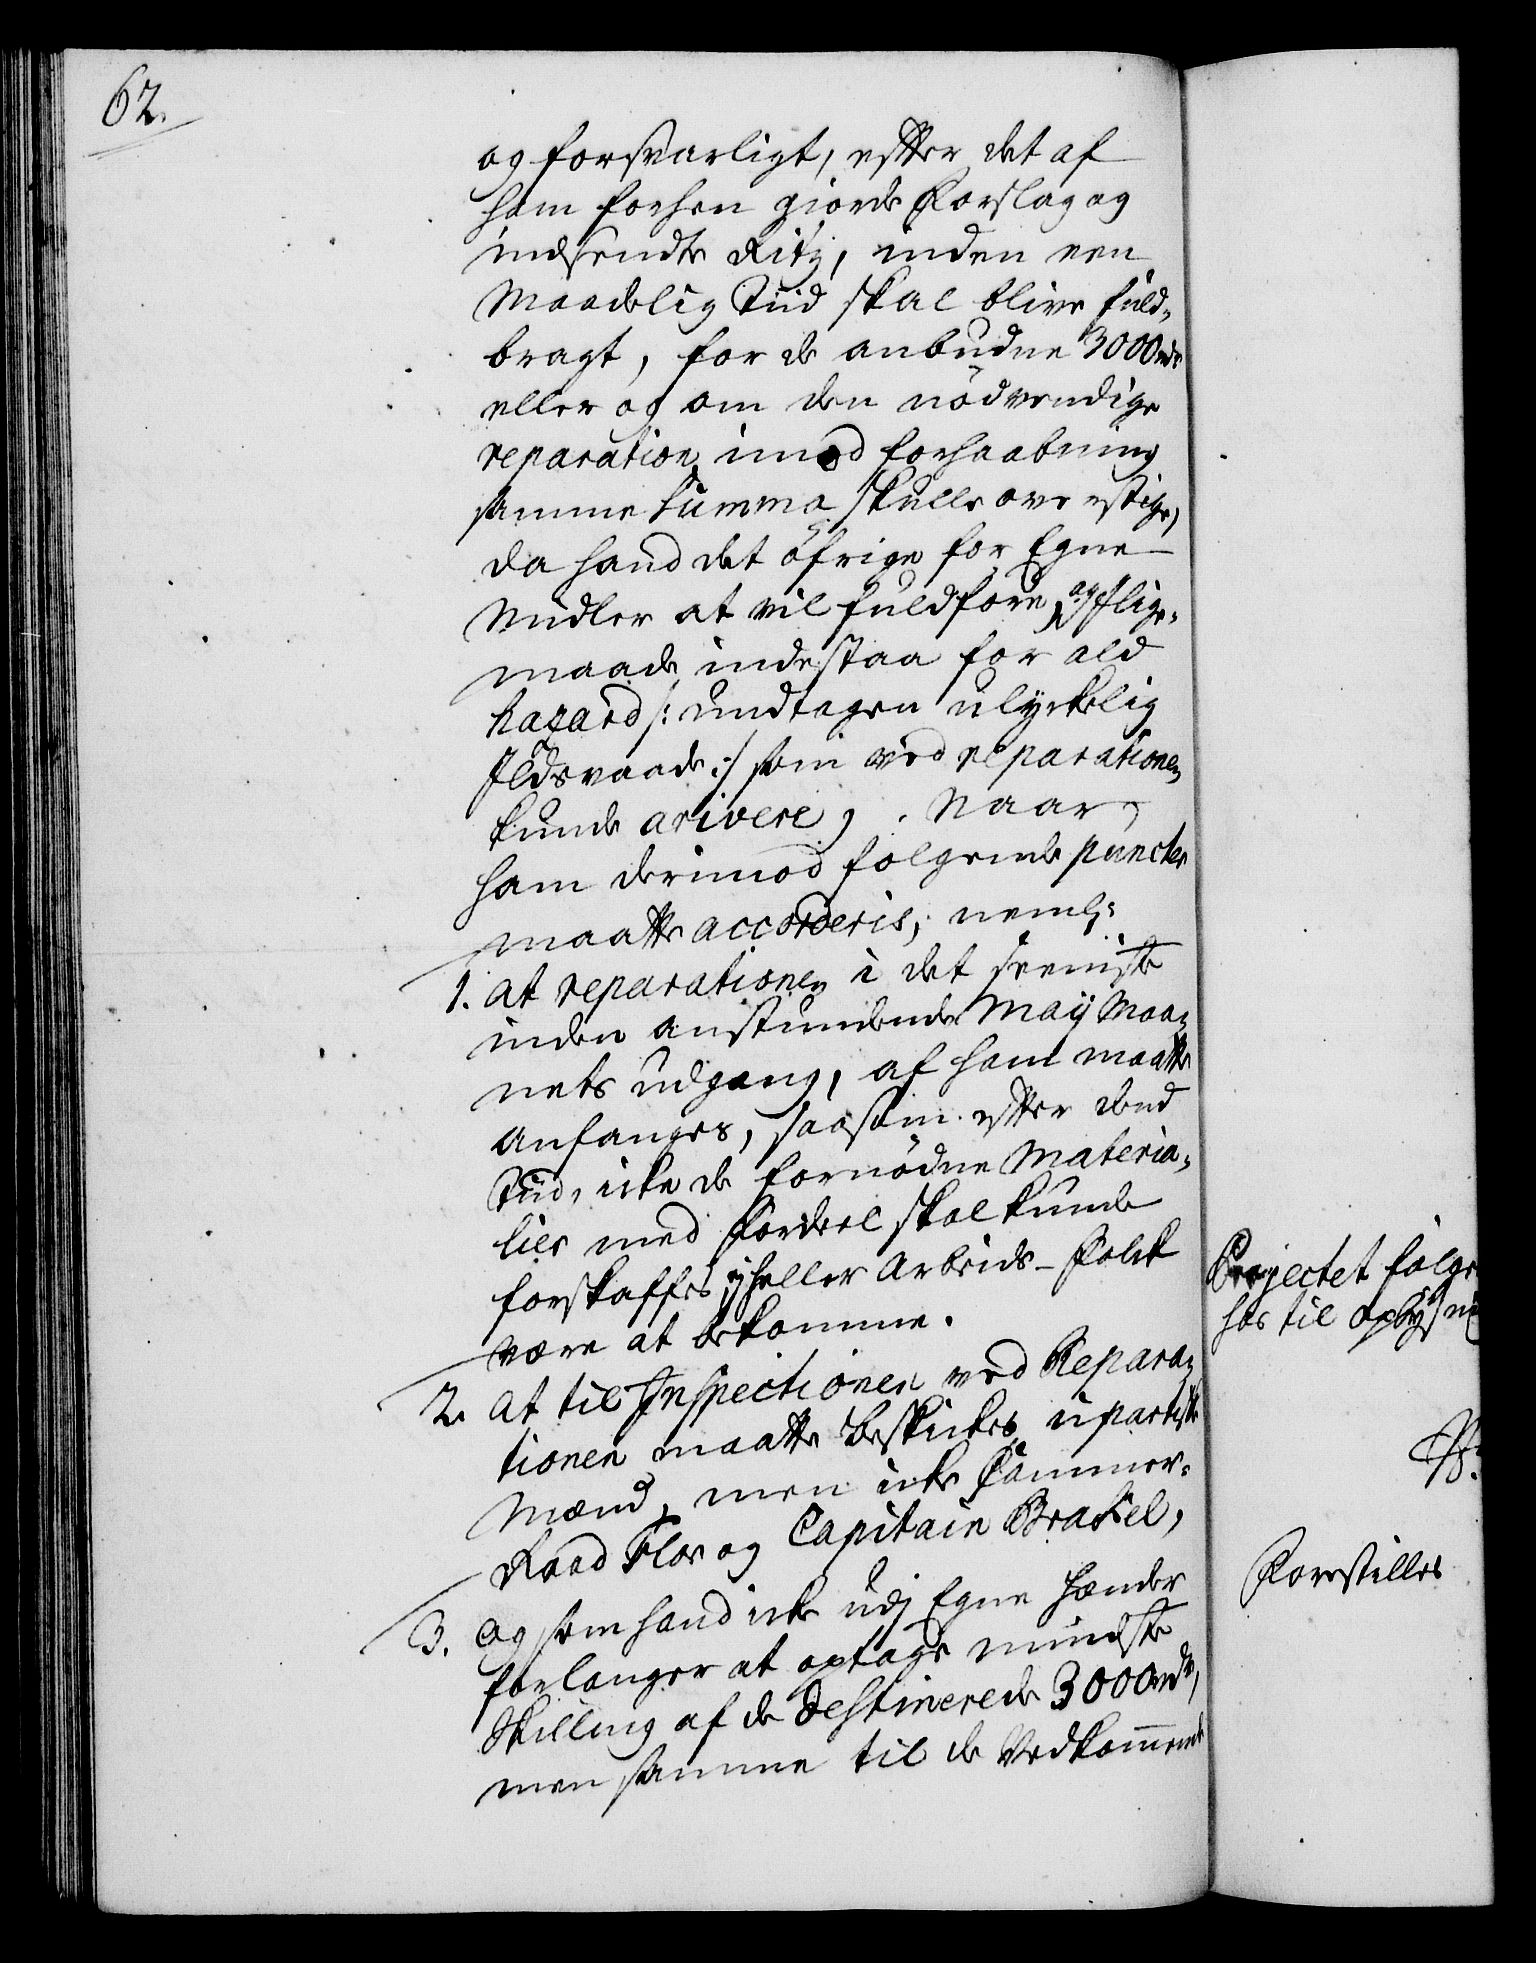 62.
og forsvarligt, efter det af
ham forhen giorde Forslag og
indsendte Ritz, inden een
Maadelig Tiid skal blive fuld-
bragt, for de anbudne 3000 rdr
eller og om den nödvendige
reparation imod forhaabning
samme Summa skulle overstige,
da hand det öfrige for Egne
Midler at vil fuldföre, og slige-
maade indestaa for ald
hazard /: undtagen ulyckelig
Ildsvaade :/ som ved reparationen
kunde arivere, . Naar
ham derimod fölgende puncter
maatte accorderis, neml:
1. at reparationen i det seeniste
inden anstundende Maij Maa-
nets udgang, af ham maatte
anfanges, saasom efter dend
Tiid, icke de fornödne Materia-
lier med Fordeel skal kunde
forskaffes, ej heller Arbeids-Folck
være at bekomme.
2. at til Inspectionen ved Repara-
tionen maatte beskickes upartiske
Mænd, men icke Cammer-
Raad Flor og Capitain Brakel,
3. Og som hand icke udj Egne Hænder
forlanger at optage mindste
Skilling af de destinerede 3000 rdr,
men samme til de Vedkommende
Projectet fölger
hos til oplysni
Forestilles